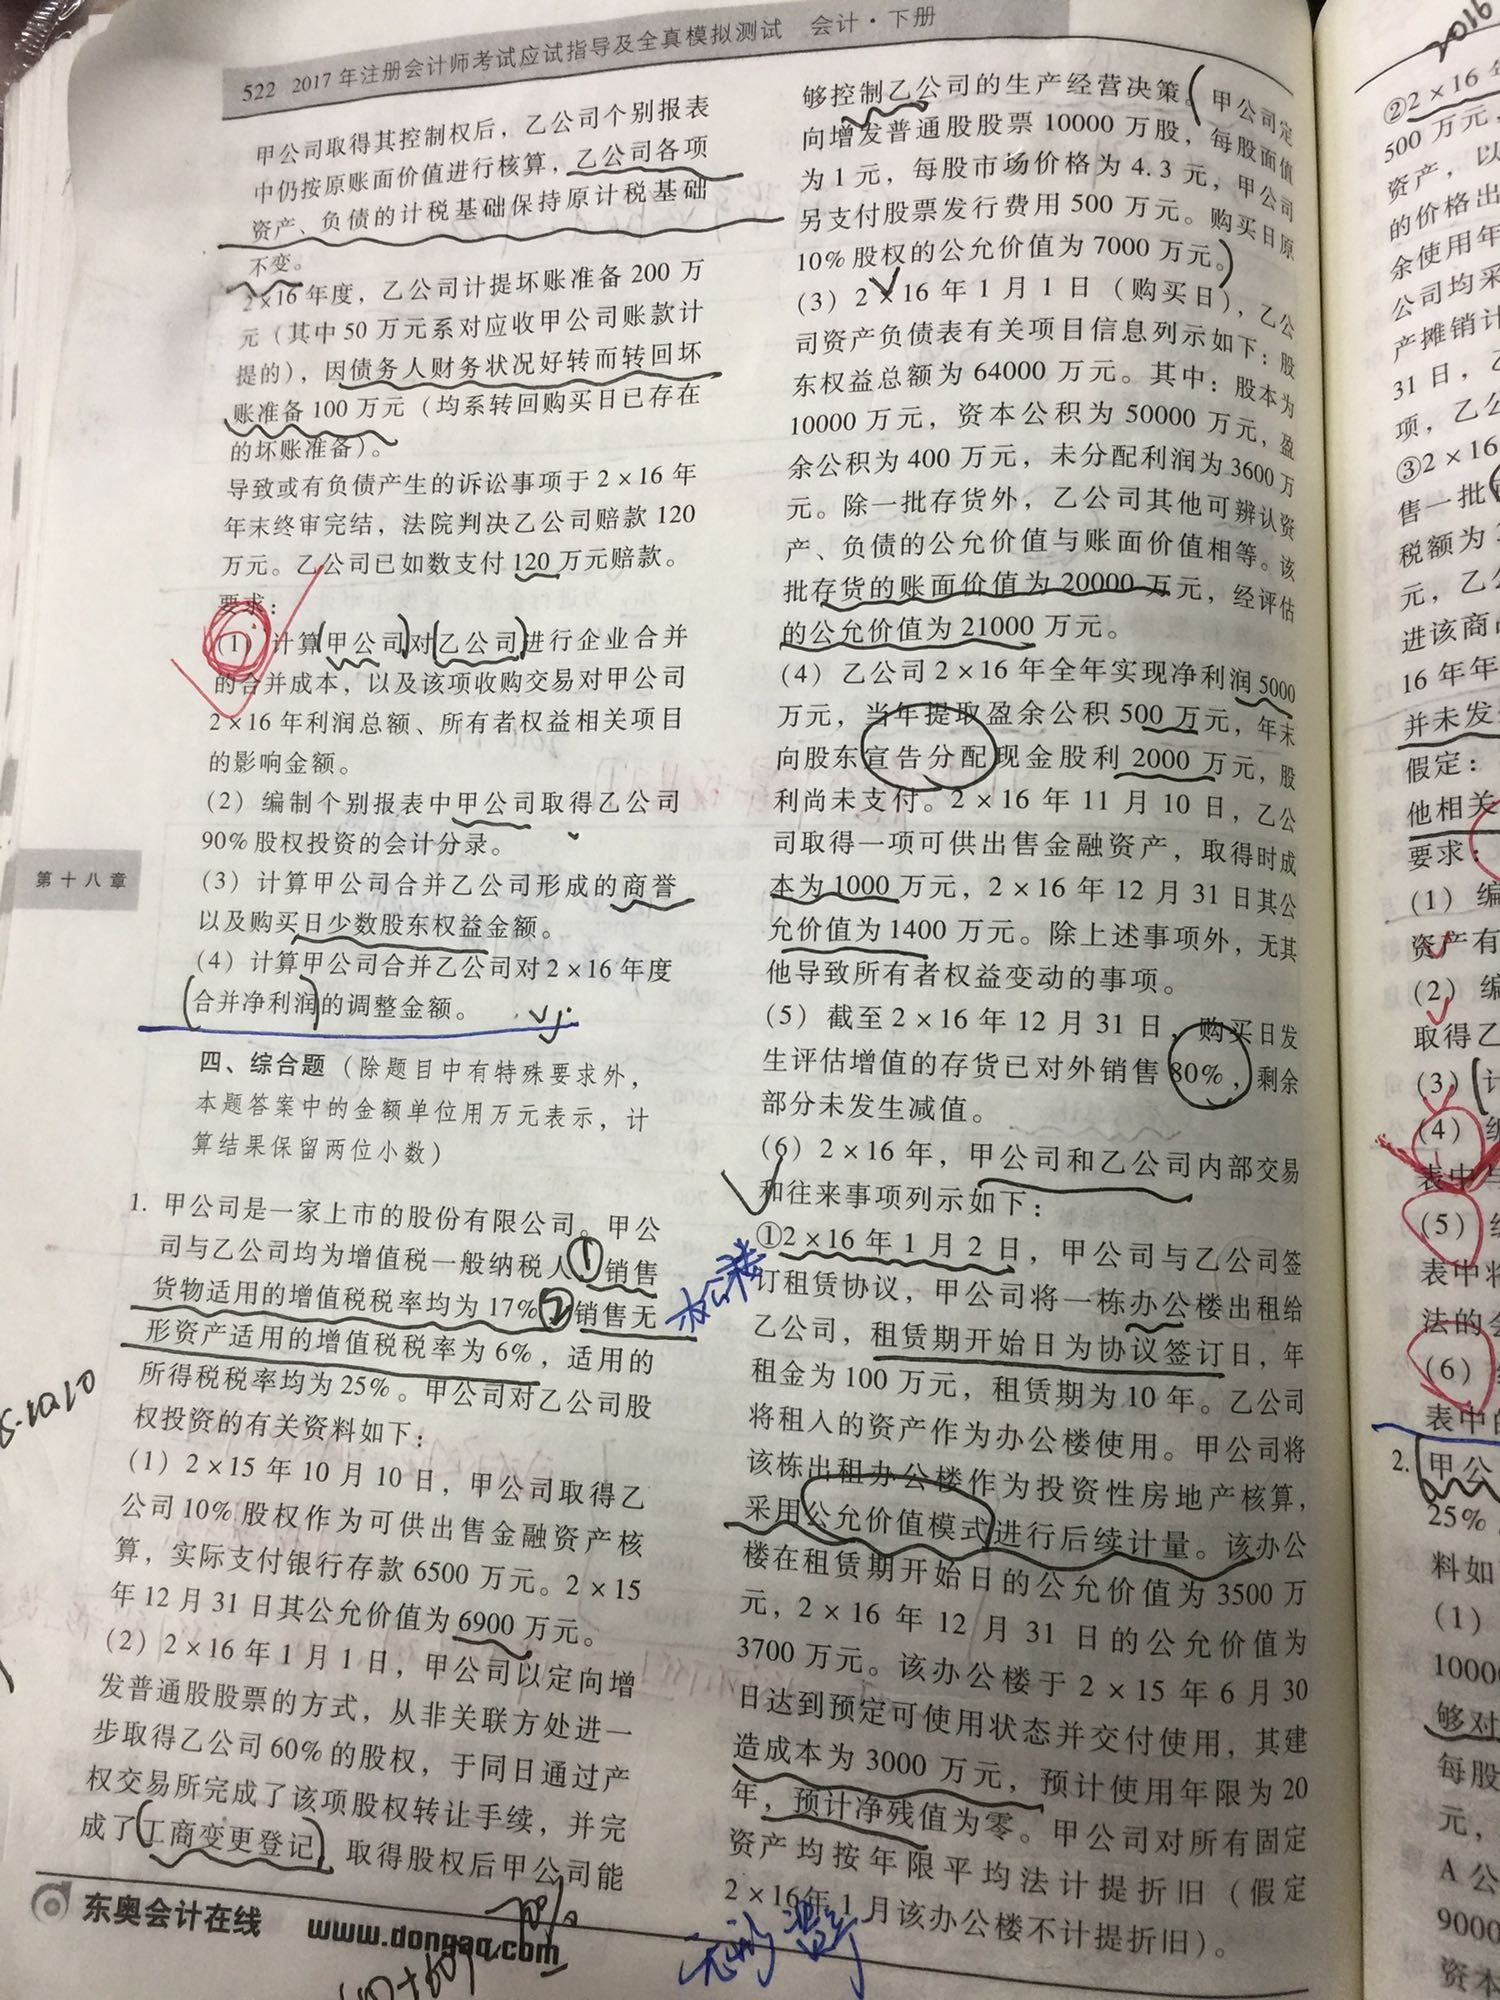 522 2017年注册会计师考试应试指导及全真模拟测试 会计·下册
甲公司取得其控制权后，乙公司个别报表
中仍按原账面价值进行核算，乙公司各项
资产、负债的计税基础保持原计税基础
不变。
2×16年度，乙公司计提坏账准备200万
元（其中50万元系对应收甲公司账款计
提的），因债务人财务状况好转而转回坏
账准备100万元（均系转回购买日已存在
的坏账准备）。
导致或有负债产生的诉讼事项于2×16年
年末终审完结，法院判决乙公司赔款120
万元。乙公司已如数支付120万元赔款。
要求：
(1) 计算甲公司对乙公司进行企业合并
的合并成本，以及该项收购交易对甲公司
2×16年利润总额、所有者权益相关项目
的影响金额。
(2) 编制个别报表中甲公司取得乙公司
90%股权投资的会计分录。
(3) 计算甲公司合并乙公司形成的商誉
以及购买日少数股东权益金额。
(4) 计算甲公司合并乙公司对2×16年度
合并净利润的调整金额。
第十八章
四、综合题（除题目中有特殊要求外，
本题答案中的金额单位用万元表示，计
算结果保留两位小数）
1. 甲公司是一家上市的股份有限公司。甲公
司与乙公司均为增值税一般纳税人①销售
货物适用的增值税税率均为17%②销售无
形资产适用的增值税税率为6%，适用的
所得税税率均为25%。甲公司对乙公司股
权投资的有关资料如下：
(1) 2×15年10月10日，甲公司取得乙
公司10%股权作为可供出售金融资产核
算，实际支付银行存款6500万元。2×15
年12月31日其公允价值为6900万元。
(2) 2×16年1月1日，甲公司以定向增
发普通股股票的方式，从非关联方处进一
步取得乙公司60%的股权，于同日通过产
权交易所完成了该项股权转让手续，并完
成了工商变更登记，取得股权后甲公司能
东奥会计在线 www.dongao.com
70%
够控制乙公司的生产经营决策。甲公司定
向增发普通股股票10000万股，每股面值
为1元，每股市场价格为4.3元，甲公司
另支付股票发行费用500万元。购买日原
10%股权的公允价值为7000万元。
(3) 2×16年1月1日（购买日），乙公
司资产负债表有关项目信息列示如下：股
东权益总额为64000万元。其中：股本为
10000万元，资本公积为50000万元，盈
余公积为400万元，未分配利润为3600万
元。除一批存货外，乙公司其他可辨认资
产、负债的公允价值与账面价值相等。该
批存货的账面价值为20000万元，经评估
的公允价值为21000万元。
(4) 乙公司2×16年全年实现净利润5000
万元，当年提取盈余公积500万元，年末
向股东宣告分配现金股利2000万元，股
利尚未支付。2×16年11月10日，乙公
司取得一项可供出售金融资产，取得时成
本为1000万元，2×16年12月31日其公
允价值为1400万元。除上述事项外，无其
他导致所有者权益变动的事项。
(5) 截至2×16年12月31日，购买日发
生评估增值的存货已对外销售80%，剩余
部分未发生减值。
(6) 2×16年，甲公司和乙公司内部交易
和往来事项列示如下：
①2×16年1月2日，甲公司与乙公司签
订租赁协议，甲公司将一栋办公楼出租给
乙公司，租赁期开始日为协议签订日，年
租金为100万元，租赁期为10年。乙公司
将租入的资产作为办公楼使用。甲公司将
该栋出租办公楼作为投资性房地产核算，
采用公允价值模式进行后续计量。该办公
楼在租赁期开始日的公允价值为3500万
元，2×16年12月31日的公允价值为
3700万元。该办公楼于2×15年6月30
日达到预定可使用状态并交付使用，其建
造成本为3000万元，预计使用年限为20
年，预计净残值为零。甲公司对所有固定
资产均按年限平均法计提折旧（假定
2×16年1月该办公楼不计提折旧）。
办公楼
2016
②2×16年
500万元，
资产，以
的价格出
余使用年
公司均采
产摊销计
31日，乙
项，乙公
③2×16
售一批
税额为
元，乙公
进该商品
16年年
并未发
假定：
他相关
要求：
(1) 编
资产有
(2) 编
取得乙
(3) 计
(4) 编
表中与
(5)
表中将
法的会
(6)
表中的
2. 甲公
25%
料如
(1)
10000
够对
每股
元，
A公
9000
资本